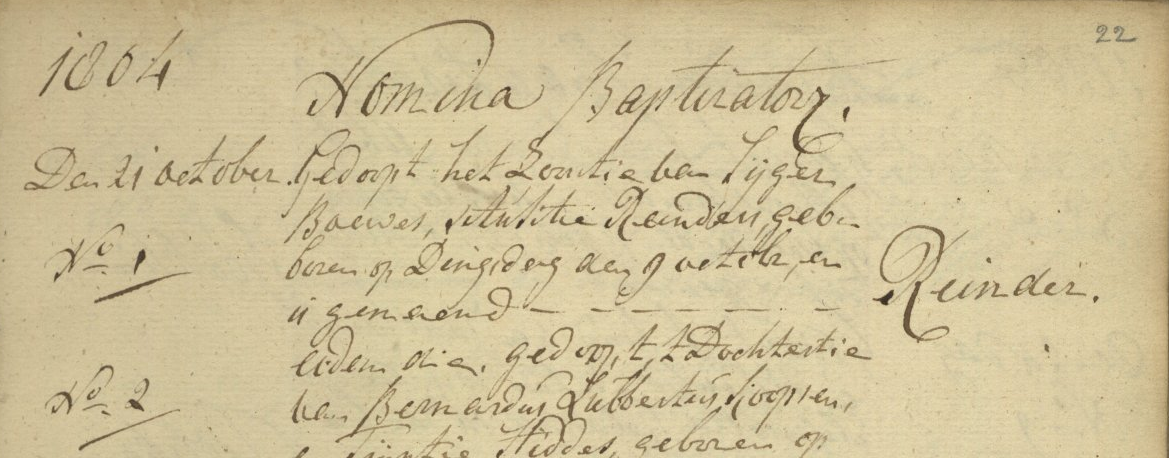 22
1804
Nomina Baptizatorz.
Den 21 october. Gedoopt het Zoontie van Sijger
Boewes, & Antie Reinders, gebo
No 1
boren op Dingsdag den 9 octobr, en
is genaemd - - - - - - Reinder.
eidem die. gedoopt, t Dochtertie
No 2
van Bernardus Lubbertus Koopsen,
Hiddes, geboren op